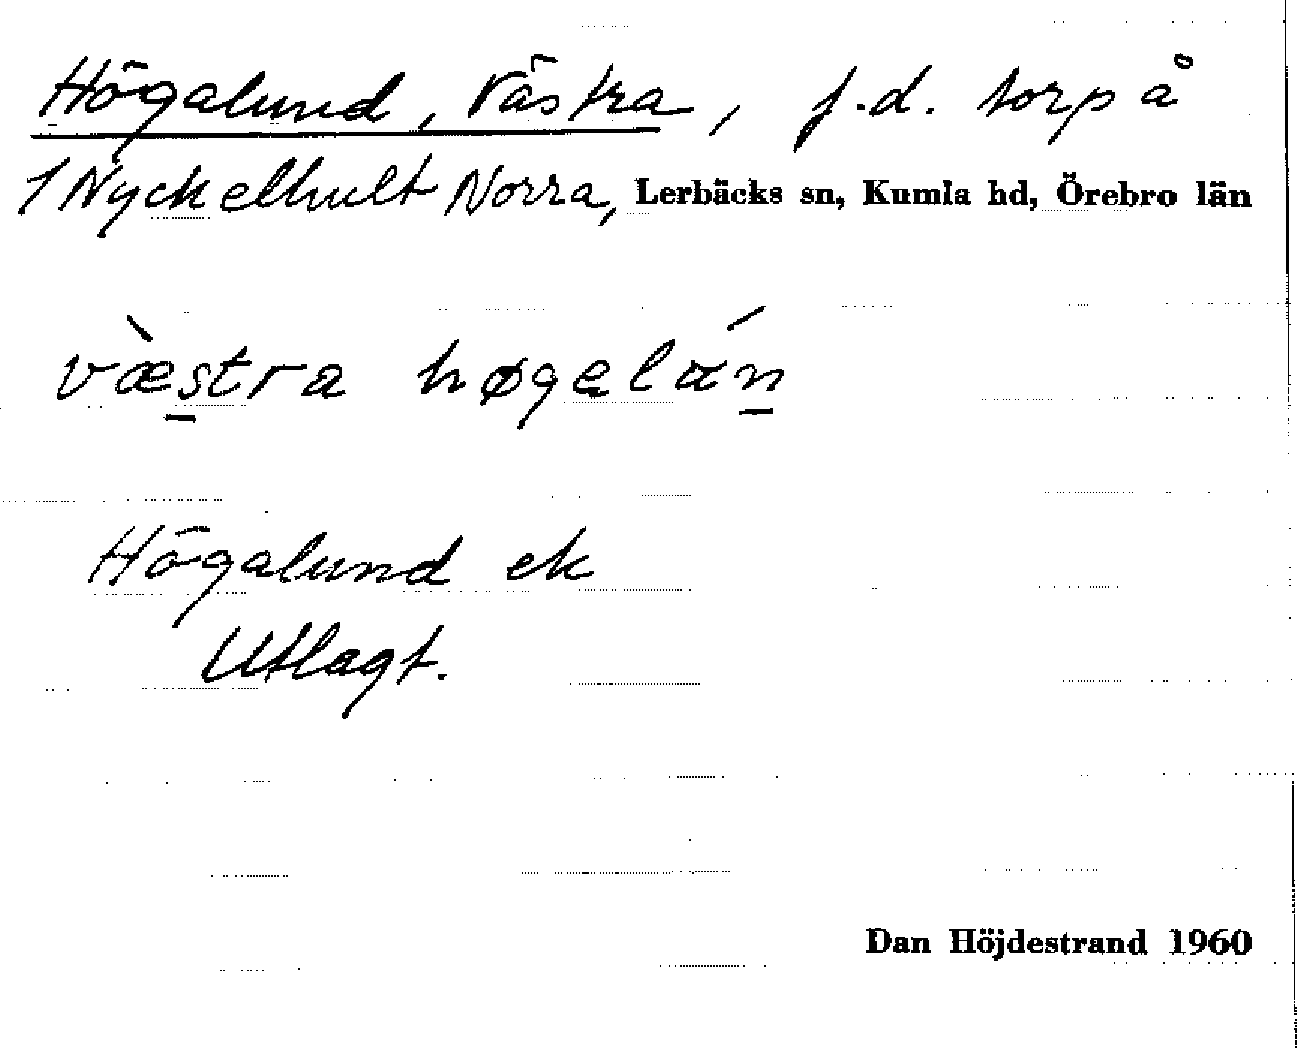 Högalund, Västra, f.d. torp å
1 Nyckelhult Norra, Lerbäcks sn, Kumla hd, Örebro län
væ̀stra høgəlαń
Högalund ek
Utlagt.
Dan Höjdestrand 1960